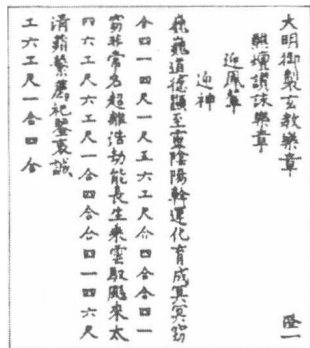 大明御製玄教樂章 隆一
醮壇讚詠樂章
迎鳳輦
迎神
巍巍道德顯至靈陰陽斡運化育成冥冥窈
合四一四尺一尺五六工尺合四合合四一
窈非常名超離浩劫能長生乘雲馭飈來太
四六工尺六工尺一合四合合四一四六尺
清蘋蘩薦祀鑒衷誠
工六工尺一合四合